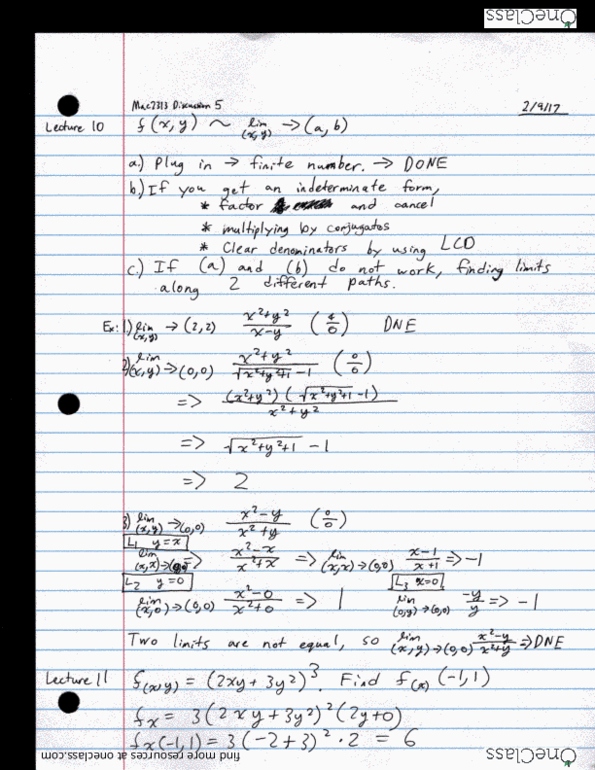 OneClass
Mac2313 Discussion 5 2/9/17
Lecture 10 f(x,y) ~ lim (x,y) → (a,b)
a) Plug in → finite number. → DONE
b) If you get an indeterminate form,
* factor and cancel
* multiplying by conjugates
* Clear denominators by using LCD
c.) If (a) and (b) do not work, finding limits
along 2 different paths.
Ex: 1) lim (x,y) → (2,2) x²+y² / x-y (4/0) DNE
2) lim (x,y) → (0,0) x²+y² / √x²+y²+1 -1 (0/0)
=> (x²+y²)(√x²+y²+1 -1) / x²+y²
=> √x²+y²+1 -1
=> 2
3) lim (x,y) → (0,0) x²-y / x²+y (0/0)
L₁ y=x
lim (x,x) → (0,0) x²-x / x²+x => lim (x,x) → (0,0) x-1 / x+1 => -1
L₂ y=0 L₃ x=0
lim (x,0) → (0,0) x²-0 / x²+0 => 1 lim (0,y) → (0,0) -y / y => -1
Two limits are not equal, so lim (x,y) → (0,0) x²-y / x²+y => DNE
Lecture 11 f(x,y) = (2xy + 3y²)³. Find f(x) (-1,1)
fx = 3(2xy + 3y²)² (2y+0)
fx(-1,1) = 3(-2+3)² · 2 = 6
find more resources at oneclass.com
OneClass